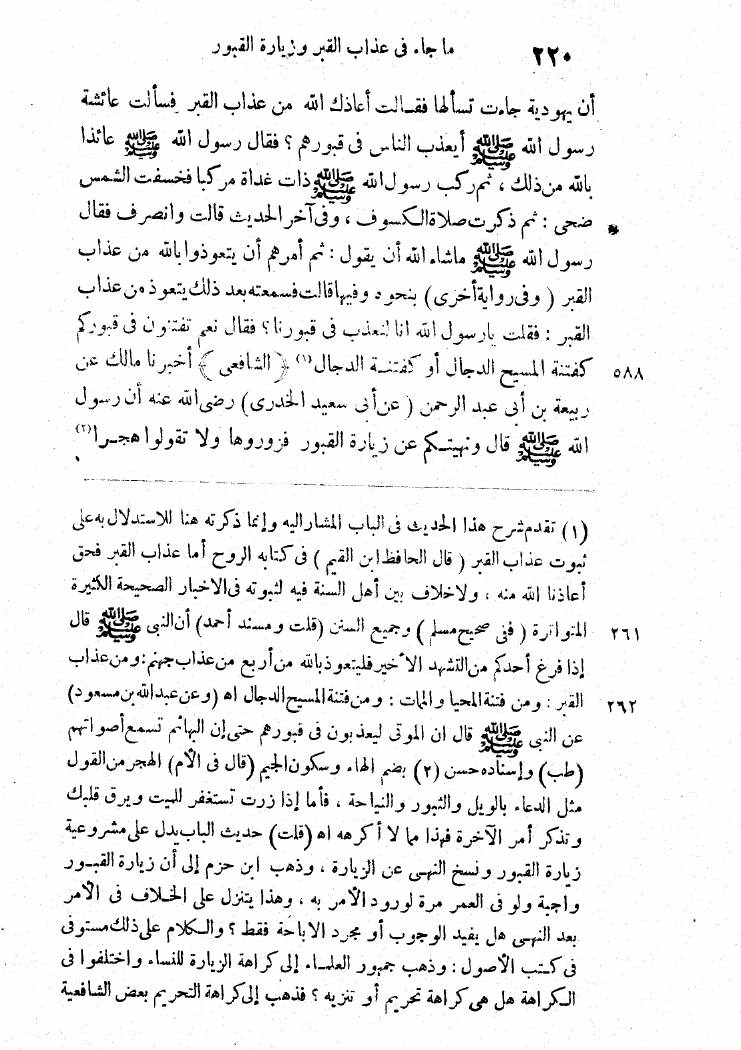 ٢٢٠ ما جاء فى عذاب القبر وزيارة القبور
أن يهودية جاءت تسألها فقالت أعاذك الله من عذاب القبر فسألت عائشة
رسول الله ﷺ أيعذب الناس فى قبورهم ؟ فقال رسول الله ﷺ عائذا
بالله من ذلك ، ثم ركب رسول الله ﷺ ذات غداة مركبا فخسفت الشمس
* ضحى : ثم ذكرت صلاة الكسوف ، وفى آخر الحديث قالت وانصرف فقال
رسول الله ﷺ ماشاء الله أن يقول : ثم أمرهم أن يتعوذوا بالله من عذاب
القبر ( وفى رواية أخرى ) بنحوه وفيها قالت فسمعته بعد ذلك يتعوذ من عذاب
القبر : فقلت يارسول الله انا لنعذب فى قبورنا ؟ فقال نعم تفتنون فى قبوركم
٥٨٨ كفتنة المسيح الدجال أو كفتنة الدجال (١) ﴿ الشافعى ﴾ أخبرنا مالك عن
ربيعة بن أبى عبد الرحمن ( عن أبى سعيد الخدرى ) رضى الله عنه أن رسول
الله ﷺ قال ونهيتكم عن زيارة القبور فزوروها ولا تقولوا هجرا (٢)
(١) تقدم شرح هذا الحديث فى الباب المشار اليه وإنما ذكرته هنا للاستدلال به على
ثبوت عذاب القبر ( قال الحافظ ابن القيم ) فى كتابه الروح أما عذاب القبر فحق
أعاذنا الله منه ، ولا خلاف بين أهل السنة فيه لثبوته فى الاخبار الصحيحة الكثيرة
٢٦١ المتواترة ( فنى صحيح مسلم ) وجميع السنن (قلت ومسند أحمد) أن النبى ﷺ قال
إذا فرغ أحدكم من التشهد الأخير فليتعوذ بالله من أربع من عذاب جهنم : ومن عذاب
٢٦٢ القبر : ومن فتنة المحيا والممات : ومن فتنة المسيح الدجال اه (وعن عبد الله بن مسعود)
عن النبى ﷺ قال ان الموتى ليعذبون فى قبورهم حتى إن البهائم تسمع أصواتهم
(طب) وإسناده حسن (٢) بضم الهاء وسكون الجيم (قال فى الأم) الهجر من القول
مثل الدعاء بالويل والثبور والنياحة ، فأما إذا زرت تستغفر للميت ويرق قلبك
وتذكر أمر الآخرة فهذا مما لا أكرهه اه (قلت) حديث الباب يدل على مشروعية
زيارة القبور ونسخ النهى عن الزيارة ، وذهب ابن حزم إلى أن زيارة القبور
واجبة ولو فى العمر مرة لورود الأمر به ، وهذا يتنزل على الخلاف فى الأمر
بعد النهى هل يفيد الوجوب أو مجرد الاباحة فقط ؟ والكلام على ذلك مستوفى
فى كتب الأصول : وذهب جمهور العلماء إلى كراهة الزيارة للنساء واختلفوا فى
الكراهة هل هى كراهة تحريم أو تنزيه ؟ فذهب إلى كراهة التحريم بعض الشافعية